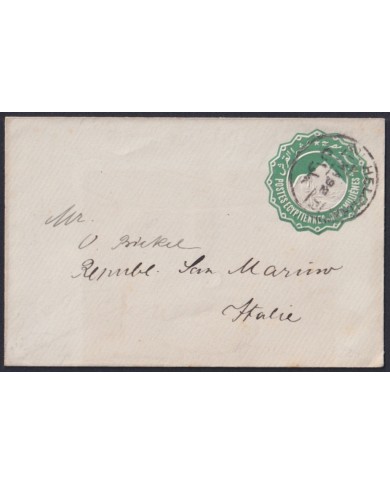 POSTES EGYPTIENNES
MILLIEMES
Mr.
O. Bickel
Republ. San Marino
Italie